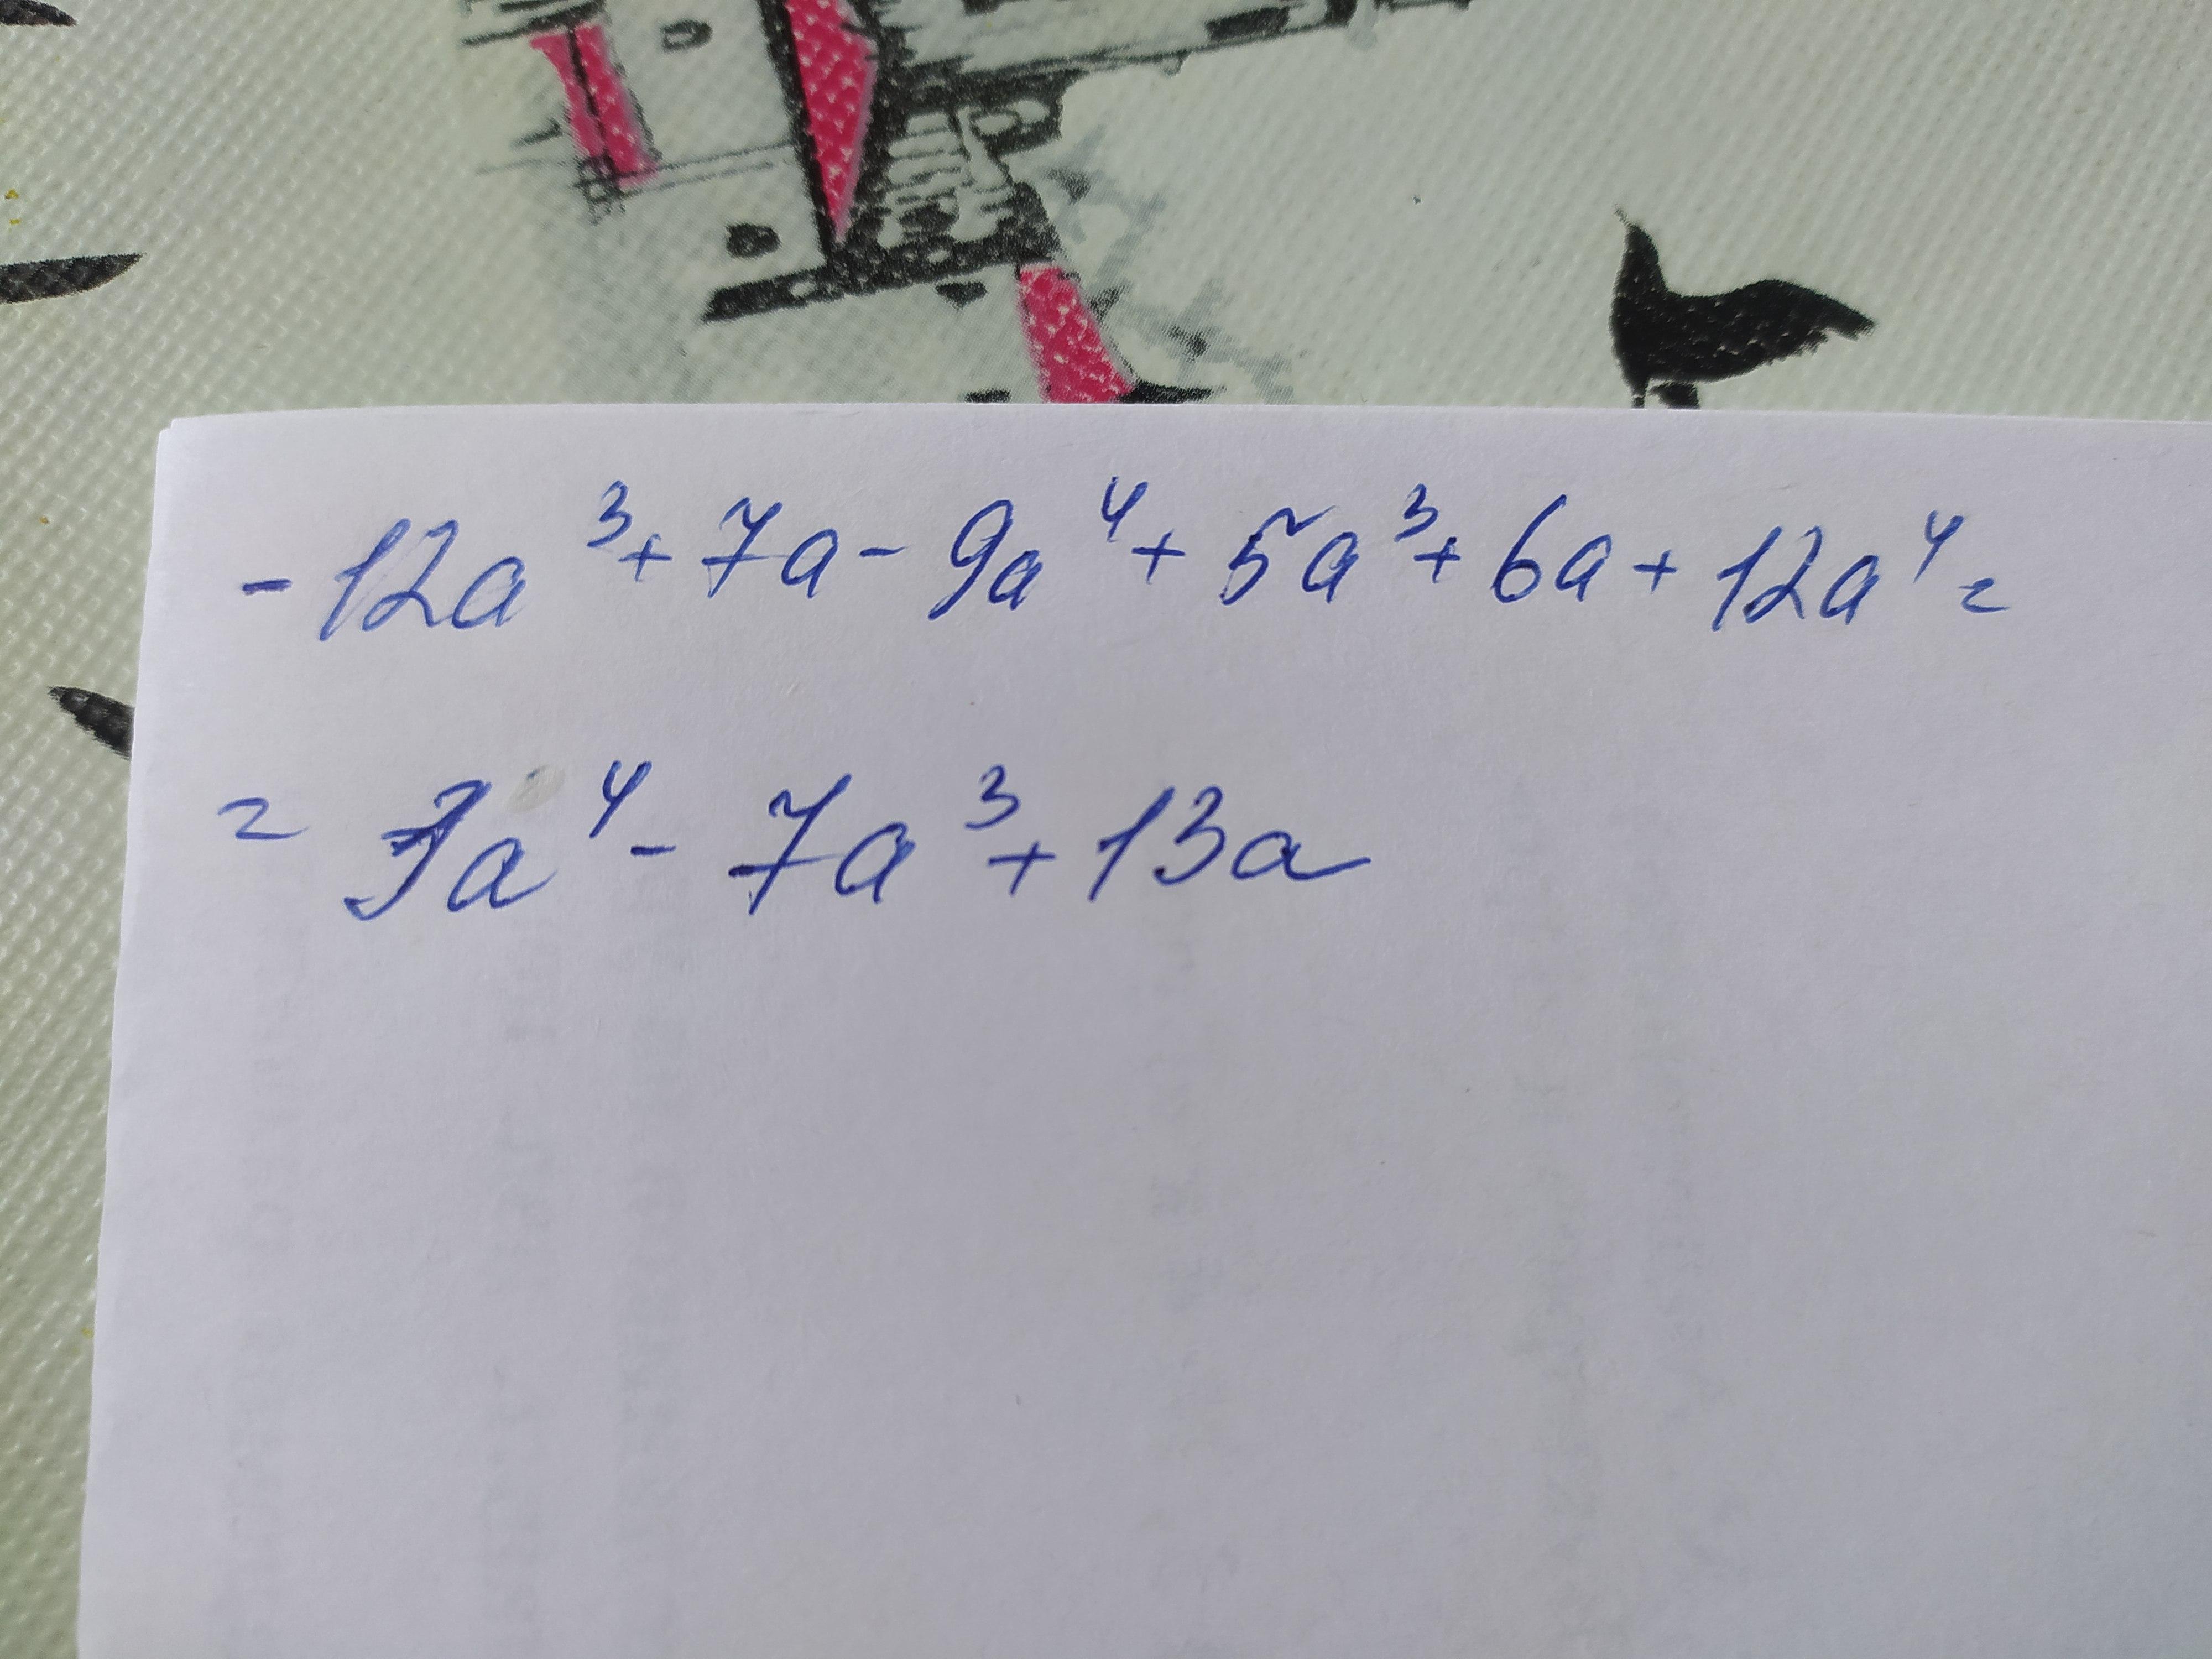 -12a³+7a-9a⁴+5a³+6a+12a⁴=
=3a⁴-7a³+13a